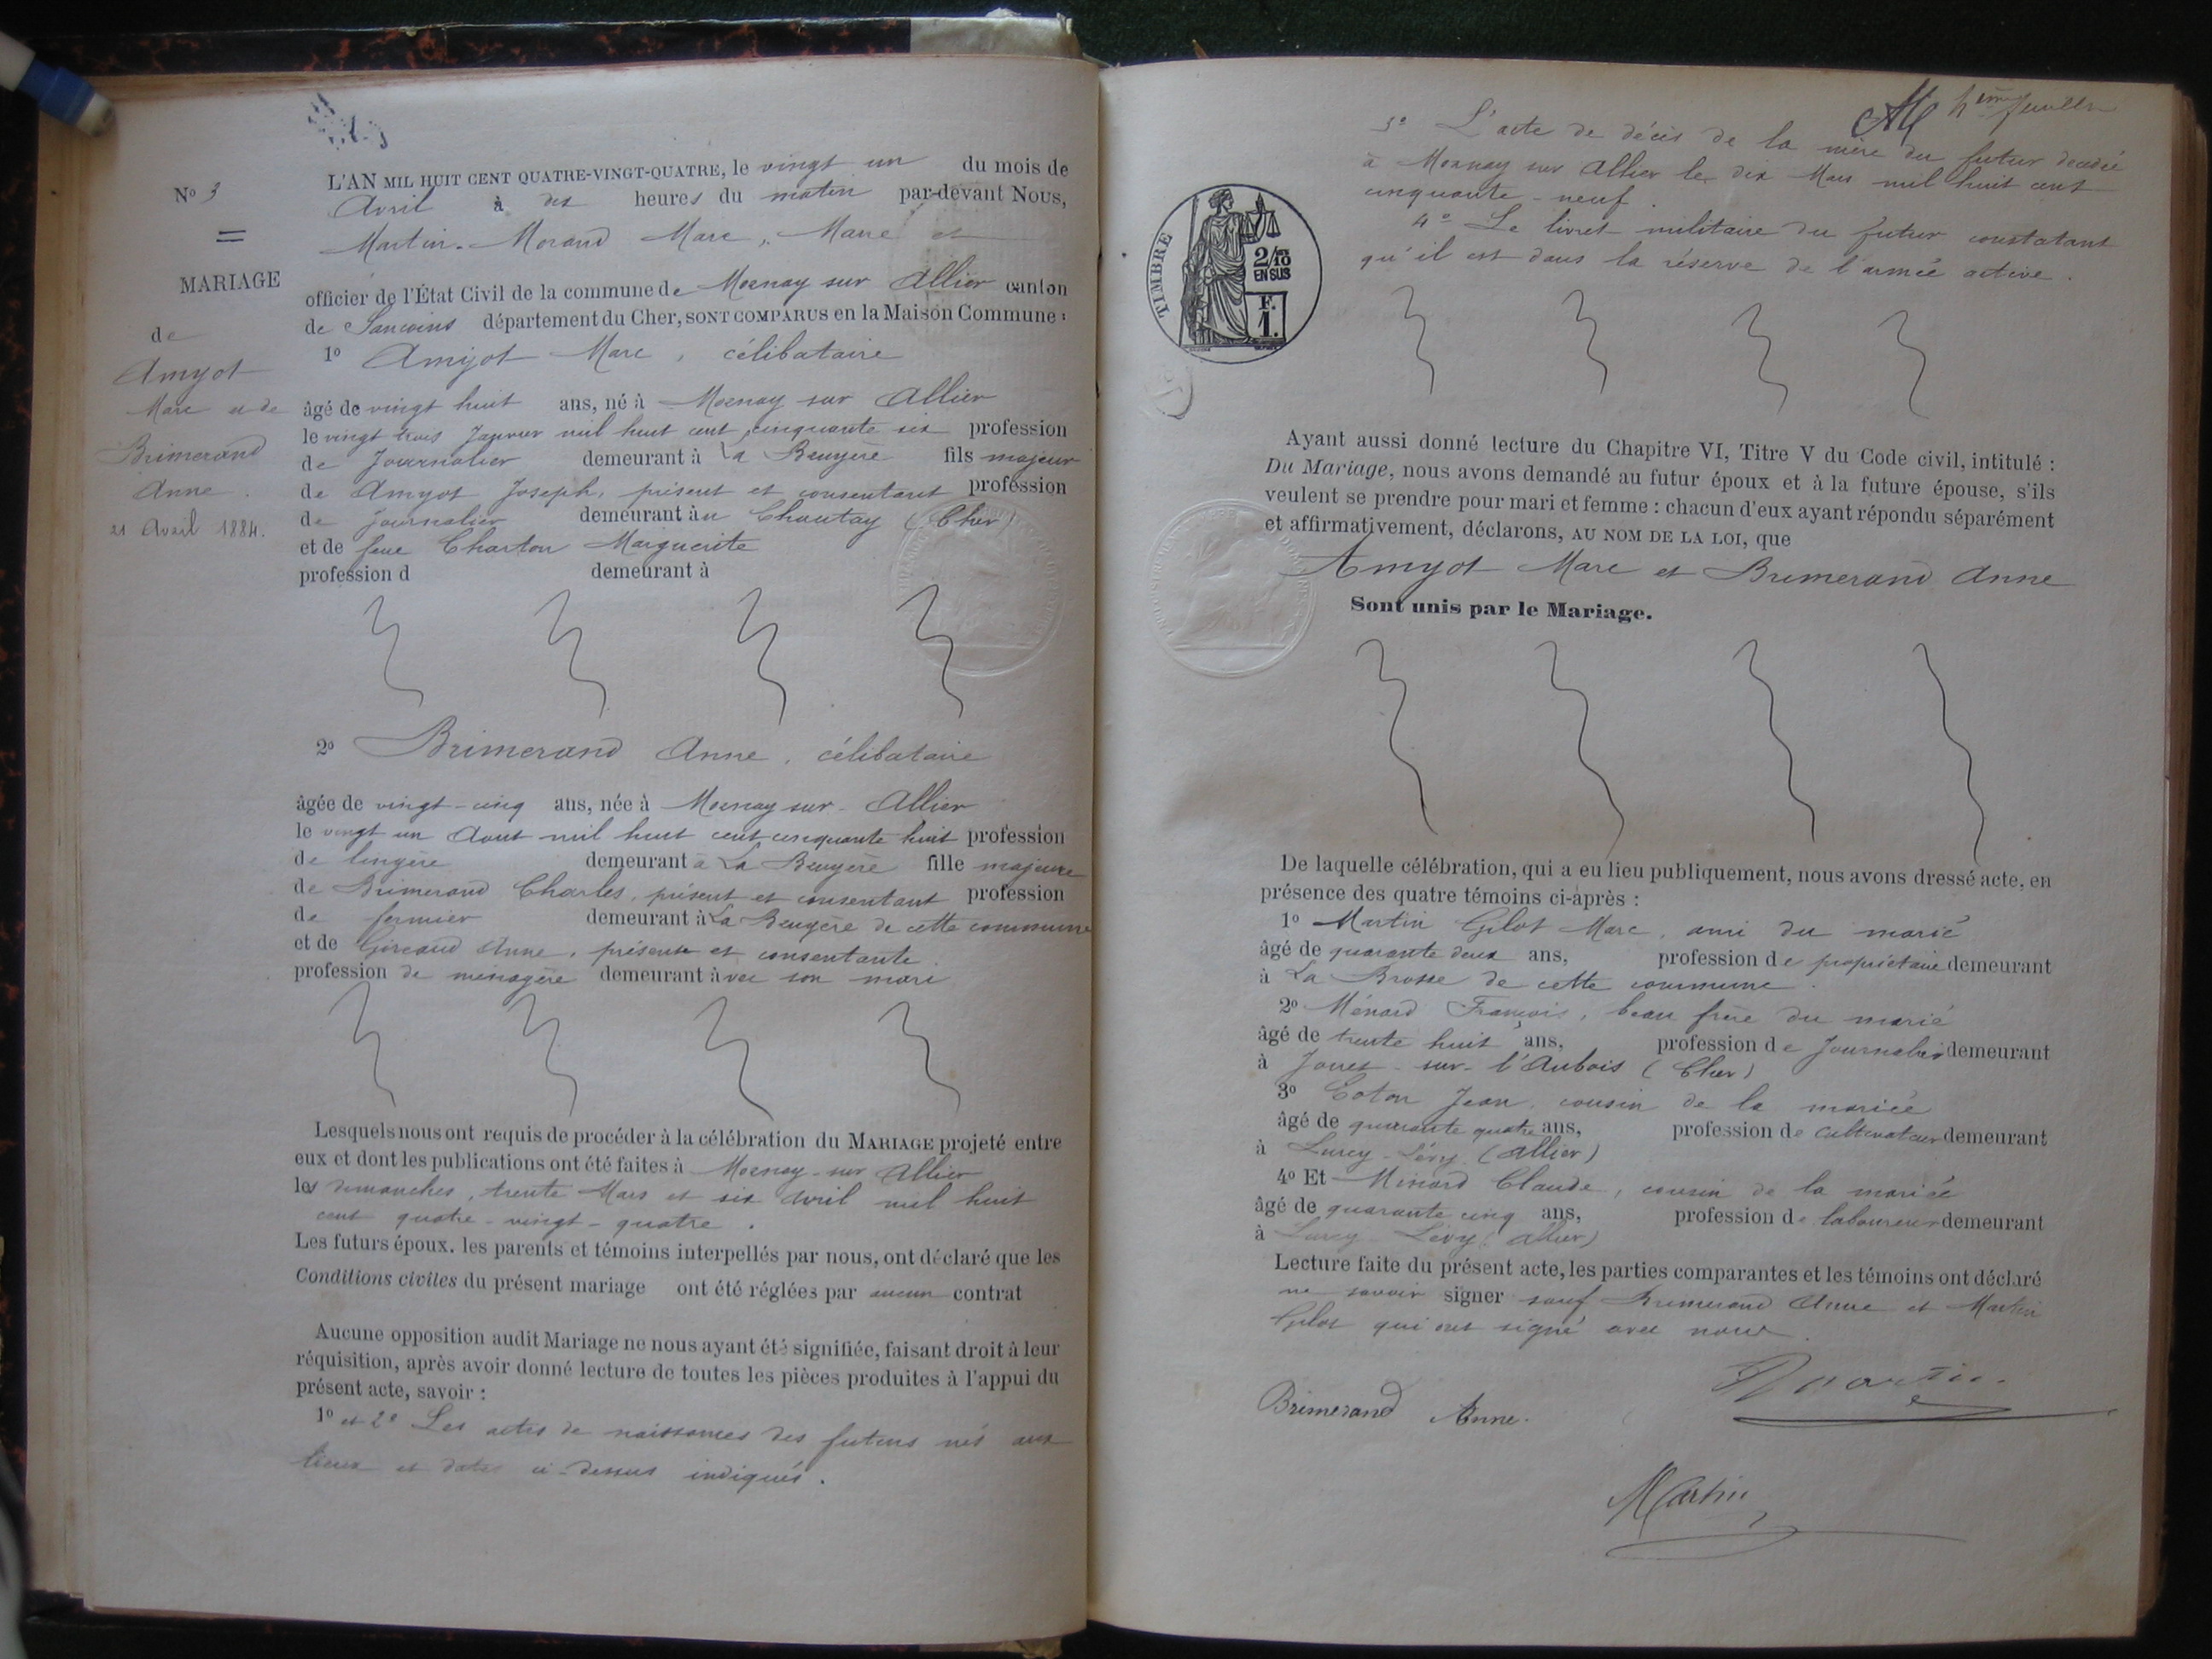 N° 3
=
MARIAGE
de
Amyot
Marc et de
Brimerand
Anne.
21 Avril 1884.
L'AN MIL HUIT CENT QUATRE-VINGT-QUATRE, le vingt un du mois de
Avril à dix heures du matin par-devant Nous,
Martin-Morand Marc, Maire et
officier de l'État Civil de la commune de Mornay sur Allier canton
de Sancoins département du Cher, SONT COMPARUS en la Maison Commune :
1° Amyot Marc, célibataire
âgé de vingt huit ans, né à Mornay sur Allier
le vingt trois Janvier mil huit cent cinquante six profession
de Journalier demeurant à La Bruyère fils majeur
de Amyot Joseph, présent et consentant profession
de journalier demeurant au Chautay (Cher)
et de feue Charton Marguerite
profession d demeurant à
2° Brimerand Anne, célibataire
âgée de vingt-cinq ans, née à Mornay sur-Allier
le vingt un Aout mil huit cent cinquante huit profession
de lingère demeurant à La Bruyère fille majeure
de Brimerand Charles, présent et consentant profession
de fermier demeurant à La Bruyère de cette commune
et de Anne, présente et consentante
profession de ménagère demeurant avec son mari
Lesquels nous ont requis de procéder à la célébration du MARIAGE projeté entre
eux et dont les publications ont été faites à Mornay-sur Allier
les dimanches, trente Mars et six Avril mil huit
cent quatre-vingt-quatre.
Les futurs époux. les parents et témoins interpellés par nous, ont déclaré que les
Conditions civiles du présent mariage ont été réglées par aucun contrat
Aucune opposition audit Mariage ne nous ayant été signifiée, faisant droit à leur
réquisition, après avoir donné lecture de toutes les pièces produites à l'appui du
présent acte, savoir :
1° et 2° Les actes de naissances des futurs nés aux
lieux et dates ci-dessus indiqués.
3° L'acte de décès de la mère du futur décédée
à Mornay sur Allier le dix Mars mil huit cent
cinquante-neuf.
4° Le livret militaire du futur constatant
qu'il est dans la réserve de l'armée active.
TIMBRE
2/10
EN SUS
F.
1.
Ayant aussi donné lecture du Chapitre VI, Titre V du Code civil, intitulé :
Du Mariage, nous avons demandé au futur époux et à la future épouse, s'ils
veulent se prendre pour mari et femme : chacun d'eux ayant répondu séparément
et affirmativement, déclarons, AU NOM DE LA LOI, que
Amyot Marc et Brimerand Anne
Sont unis par le Mariage.
De laquelle célébration, qui a eu lieu publiquement, nous avons dressé acte, en
présence des quatre témoins ci-après :
1° Martin Gilot Marc, ami du marié
âgé de quarante deux ans, profession de propriétaire demeurant
à La Brosse de cette commune.
2° Ménard François, beau frère du marié
âgé de trente huit ans, profession de Journalier demeurant
à Jouet-sur-l'Aubois (Cher)
3° Coton Jean, cousin de la mariée
âgé de quarante quatre ans, profession de cultivateur demeurant
à Lurcy-Lévy (Allier)
4° Et Claude, cousin de la mariée
âgé de quarante cinq ans, profession de laboureur demeurant
à Lurcy Lévy (Allier)
Lecture faite du présent acte, les parties comparantes et les témoins ont déclaré
ne savoir signer sauf Brimerand Anne et Martin
Gilot qui ont signé avec nous.
Brimerand Anne.
Martin
Martin